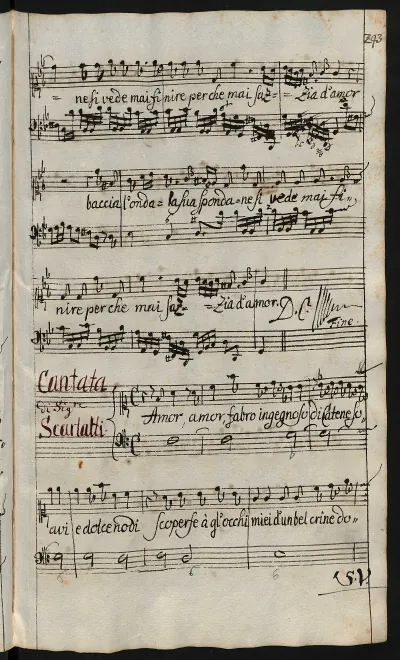 293
= ne si vede mai finire perche mai saz= = zia d'amor
baccia l'onda = la sua sponda = ne si vede mai fi=
nire perche mai saz= = zia d'amor. D.C.
Fine.
Cantata
di Sigr.
Scarlatti
Amor, amor, fabro ingegnoso di catene so=
avi e dolce nodi scoperse à gl'occhi miei d'un bel crine do=
V.S.